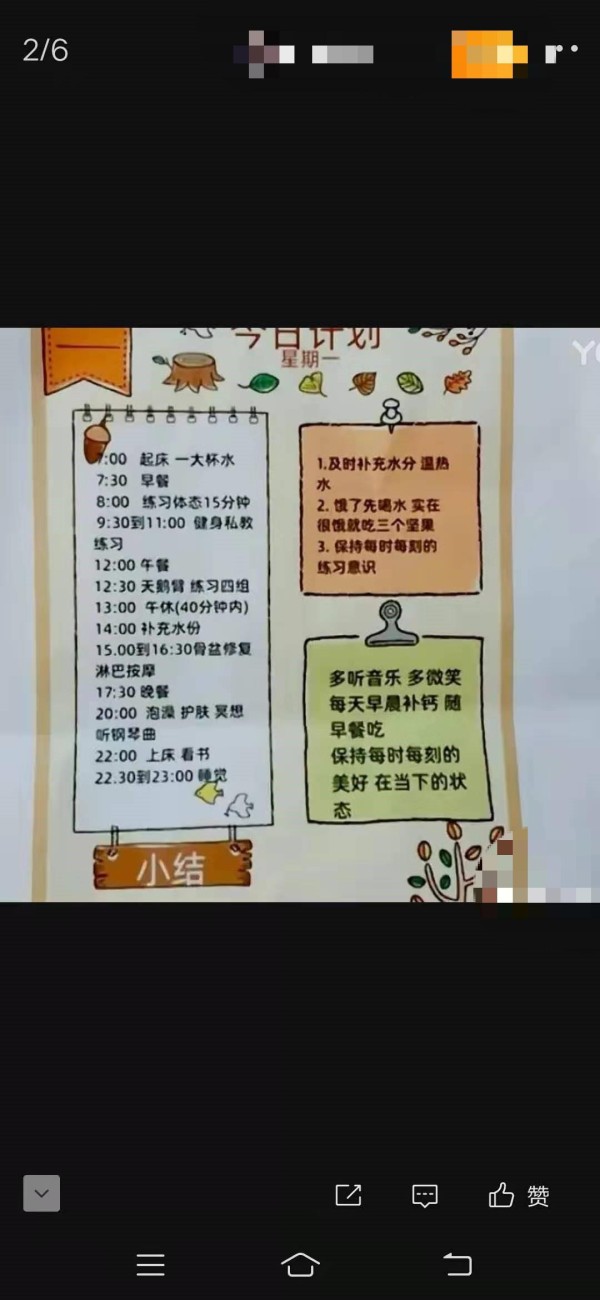 2/6
今日计划
星期一
7:00 起床 一大杯水
7:30 早餐
8:00 练习体态15分钟
9:30到11:00 健身私教
练习
12:00 午餐
12:30 天鹅臂 练习四组
13:00 午休(40分钟内)
14:00 补充水份
15.00到16:30骨盆修复
淋巴按摩
17:30 晚餐
20:00 泡澡 护肤 冥想
听钢琴曲
22:00 上床 看书
22.30到23:00 睡觉
1.及时补充水分 温热
水
2. 饿了先喝水 实在
很饿就吃三个坚果
3. 保持每时每刻的
练习意识
多听音乐 多微笑
每天早晨补钙 随
早餐吃
保持每时每刻的
美好 在当下的状
态
小结
赞